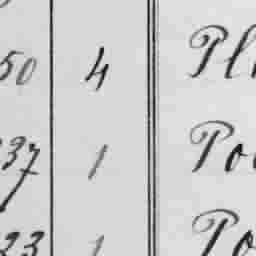 50 4 Pl
37 1 Po
23 1 Po